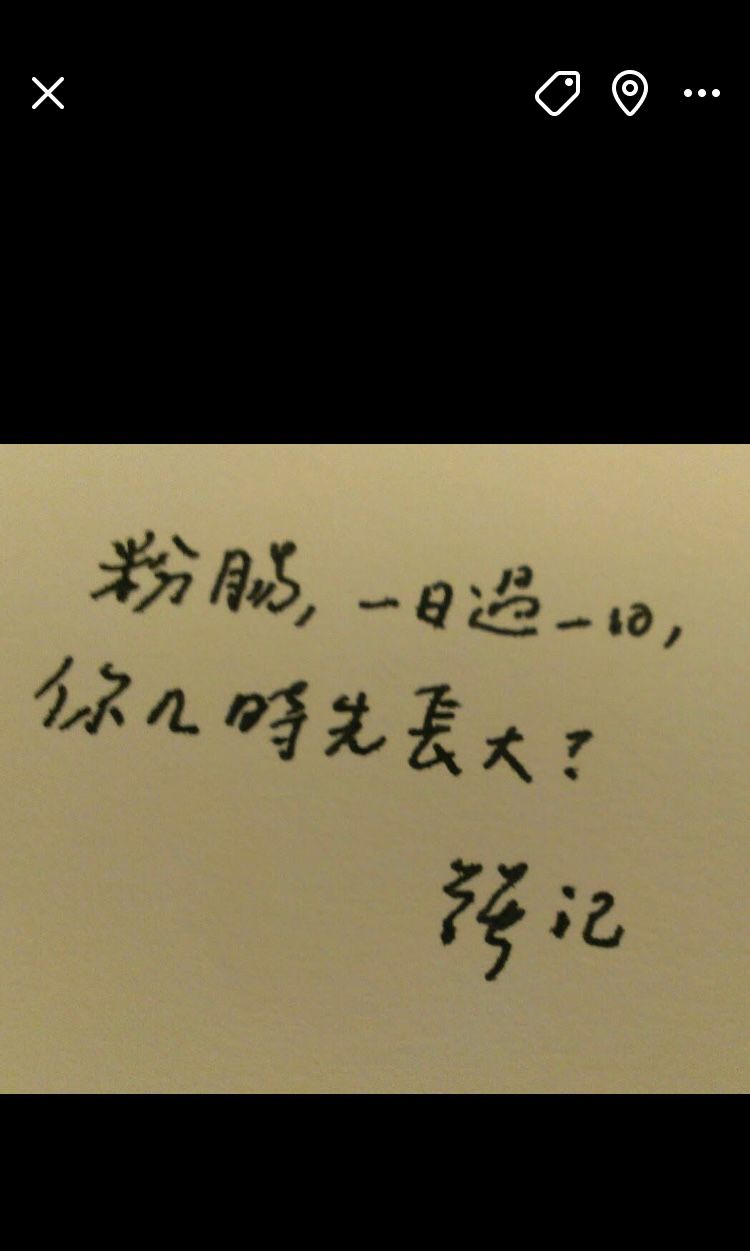 粉腸，一日過一日，
你几時先長大？
记